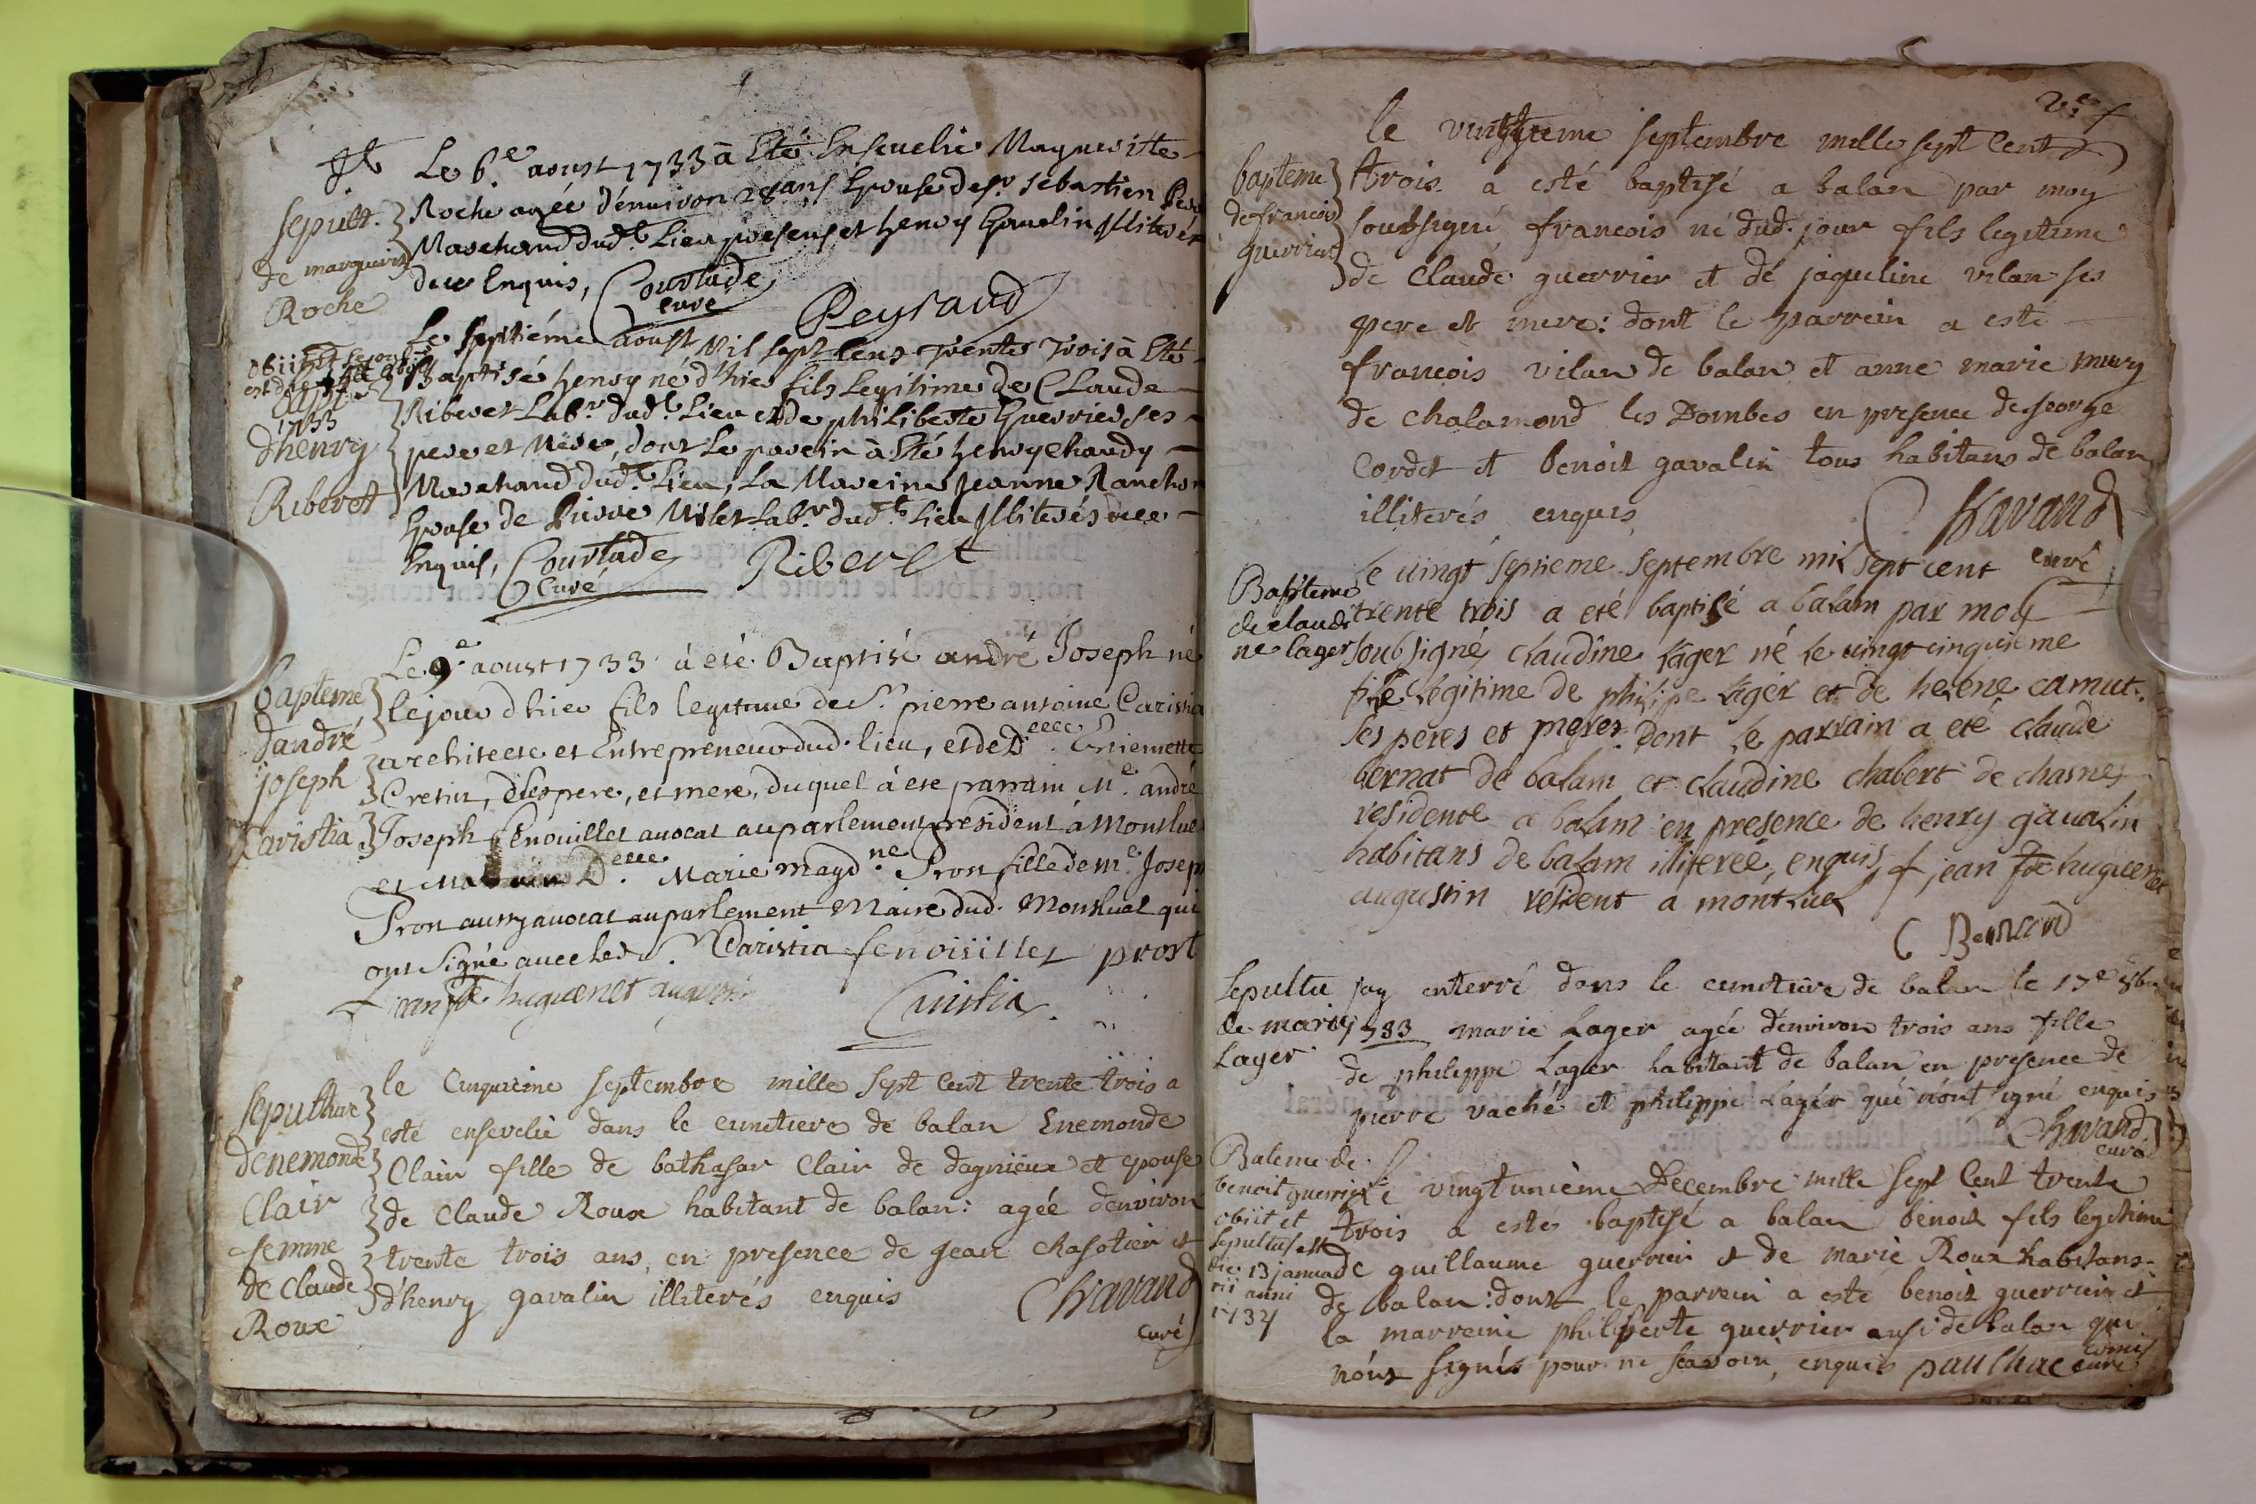 Le 6.e aoust 1733 à Eté Ensevelie Marguerite
Roche agée d'environ 28 ans Epouse de sr. sebastien
Marchand dud.t Lieu presens et henry Gavelin Illiterés
de ce Enquis, Courtade
curé
Peyraud
Sepult.
de marguerit
Roche
Le septiéme aoust Mil sept Cens Trente Trois à Eté
Baptisé henry né d'hier fils Legitime de Claude
Riberet Lab.r dud.t Lieu et de philiberte Guerrier ses
pere et Mere, dont Le parein à Eté henry chandy
Marchand dud.t Lieu, La Mareine Jeanne Ranchon
Epouse de Pierre Milet Lab.r dud.t Lieu Illiterés de ce
Enquis, Courtade
Curé
Riberet
1733
d'henry
Riberet
Le 9.e aoust 1733 à eté Baptisé andré Joseph né
le jour d'hier fils legitime de S.r pierre antoine Caristia
architecte et Entrepreneur dud. lieu, et de D.elle Pierrette
Cretin, ses pere, et mere, duquel à ete parrain M.e andré
Joseph fenouillet avocat au parlement résident à Montluel
et D.elle Marie magd.ne Pron fille de m.e Josep
Pron aussy avocat au parlement Maire dud. Montluel qui
ont signé avec led. Caristia fenoüillet prost
Jean fse. huguenet augustin
Caristia
bapteme
d'andré
joseph
Caristia
le Cinquieme septembre mille sept Cent trente trois a
esté ensevelie dans le cimetiere de balan Enemonde
Clair fille de balthasar Clair de dagnieux et epouse
de Claude Roux habitant de balan: agée denviron
trente trois ans, en presence de jean chasotier et
d'henry gavalin illiterés enquis
Chavand
curé
sepulture
denemonde
Clair
femme
de Claude
Roux
le septembre mille sept Cent
trois a esté baptisé a balan par moy
soubsigné francois né dud. jour fils legitime
de Claude guerrier et de jaqueline vilan ses
pere et mere: dont le parrein a esté
francois vilan de balan et anne marie mury
de chalamond les Dombes en presence de george
Cordet et benoit gavalin tous habitans de balan
illiterés enquis
Chavand
curé
bapteme
de francois
guerrier
le vingt septieme septembre mil sept cent
trente trois a eté baptisé a balam par moy
soubsigné claudine lager né le vingt cinquieme
fille legitime de philipe lager et de helene camut
ses peres et meres dont le parrain a eté claude
bernat de balam et claudine chabert de chasnes
residente a balam en presence de henry gavalin
habitans de balam illiterée, enquis, jean fse huguenet
augustin resident a montluel
Bernard
Bapteme
de claudi
ne lager
jay enterré dans le cimetiere de balan le 17e 8bre
1733 marie Lager agée denviron trois ans fille
de philippe Lager habitant de balan en presence de
pierre vaché et philippe Lager qui n'ont signé enquis
Chavand
curé
Sepultu
de marie
Lager
Le vingtunième Decembre mille sept Cent trente
trois a esté baptisé a balan benoit fils legitime
de guillaume guerrier et de marie Roux habitans
de balan: dont le parrein a esté benoit guerrier et
la marreine philiberte guerrier ausi de balan qui
n'ont signés pour ne scavoir, enquis paulhac curé
Bateme de
benoit guerrier
obiit et
sepultus est
die 13 janua
rii anni
1734